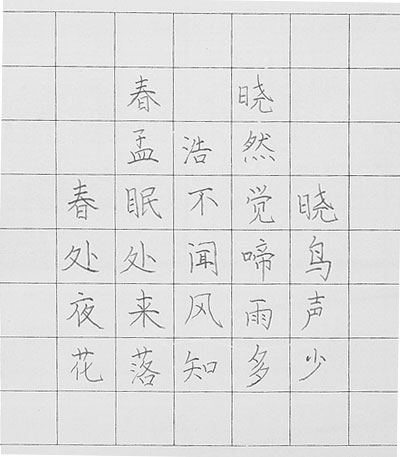 春 晓
孟浩然
春眠不觉晓
处处闻啼鸟
夜来风雨声
花落知多少